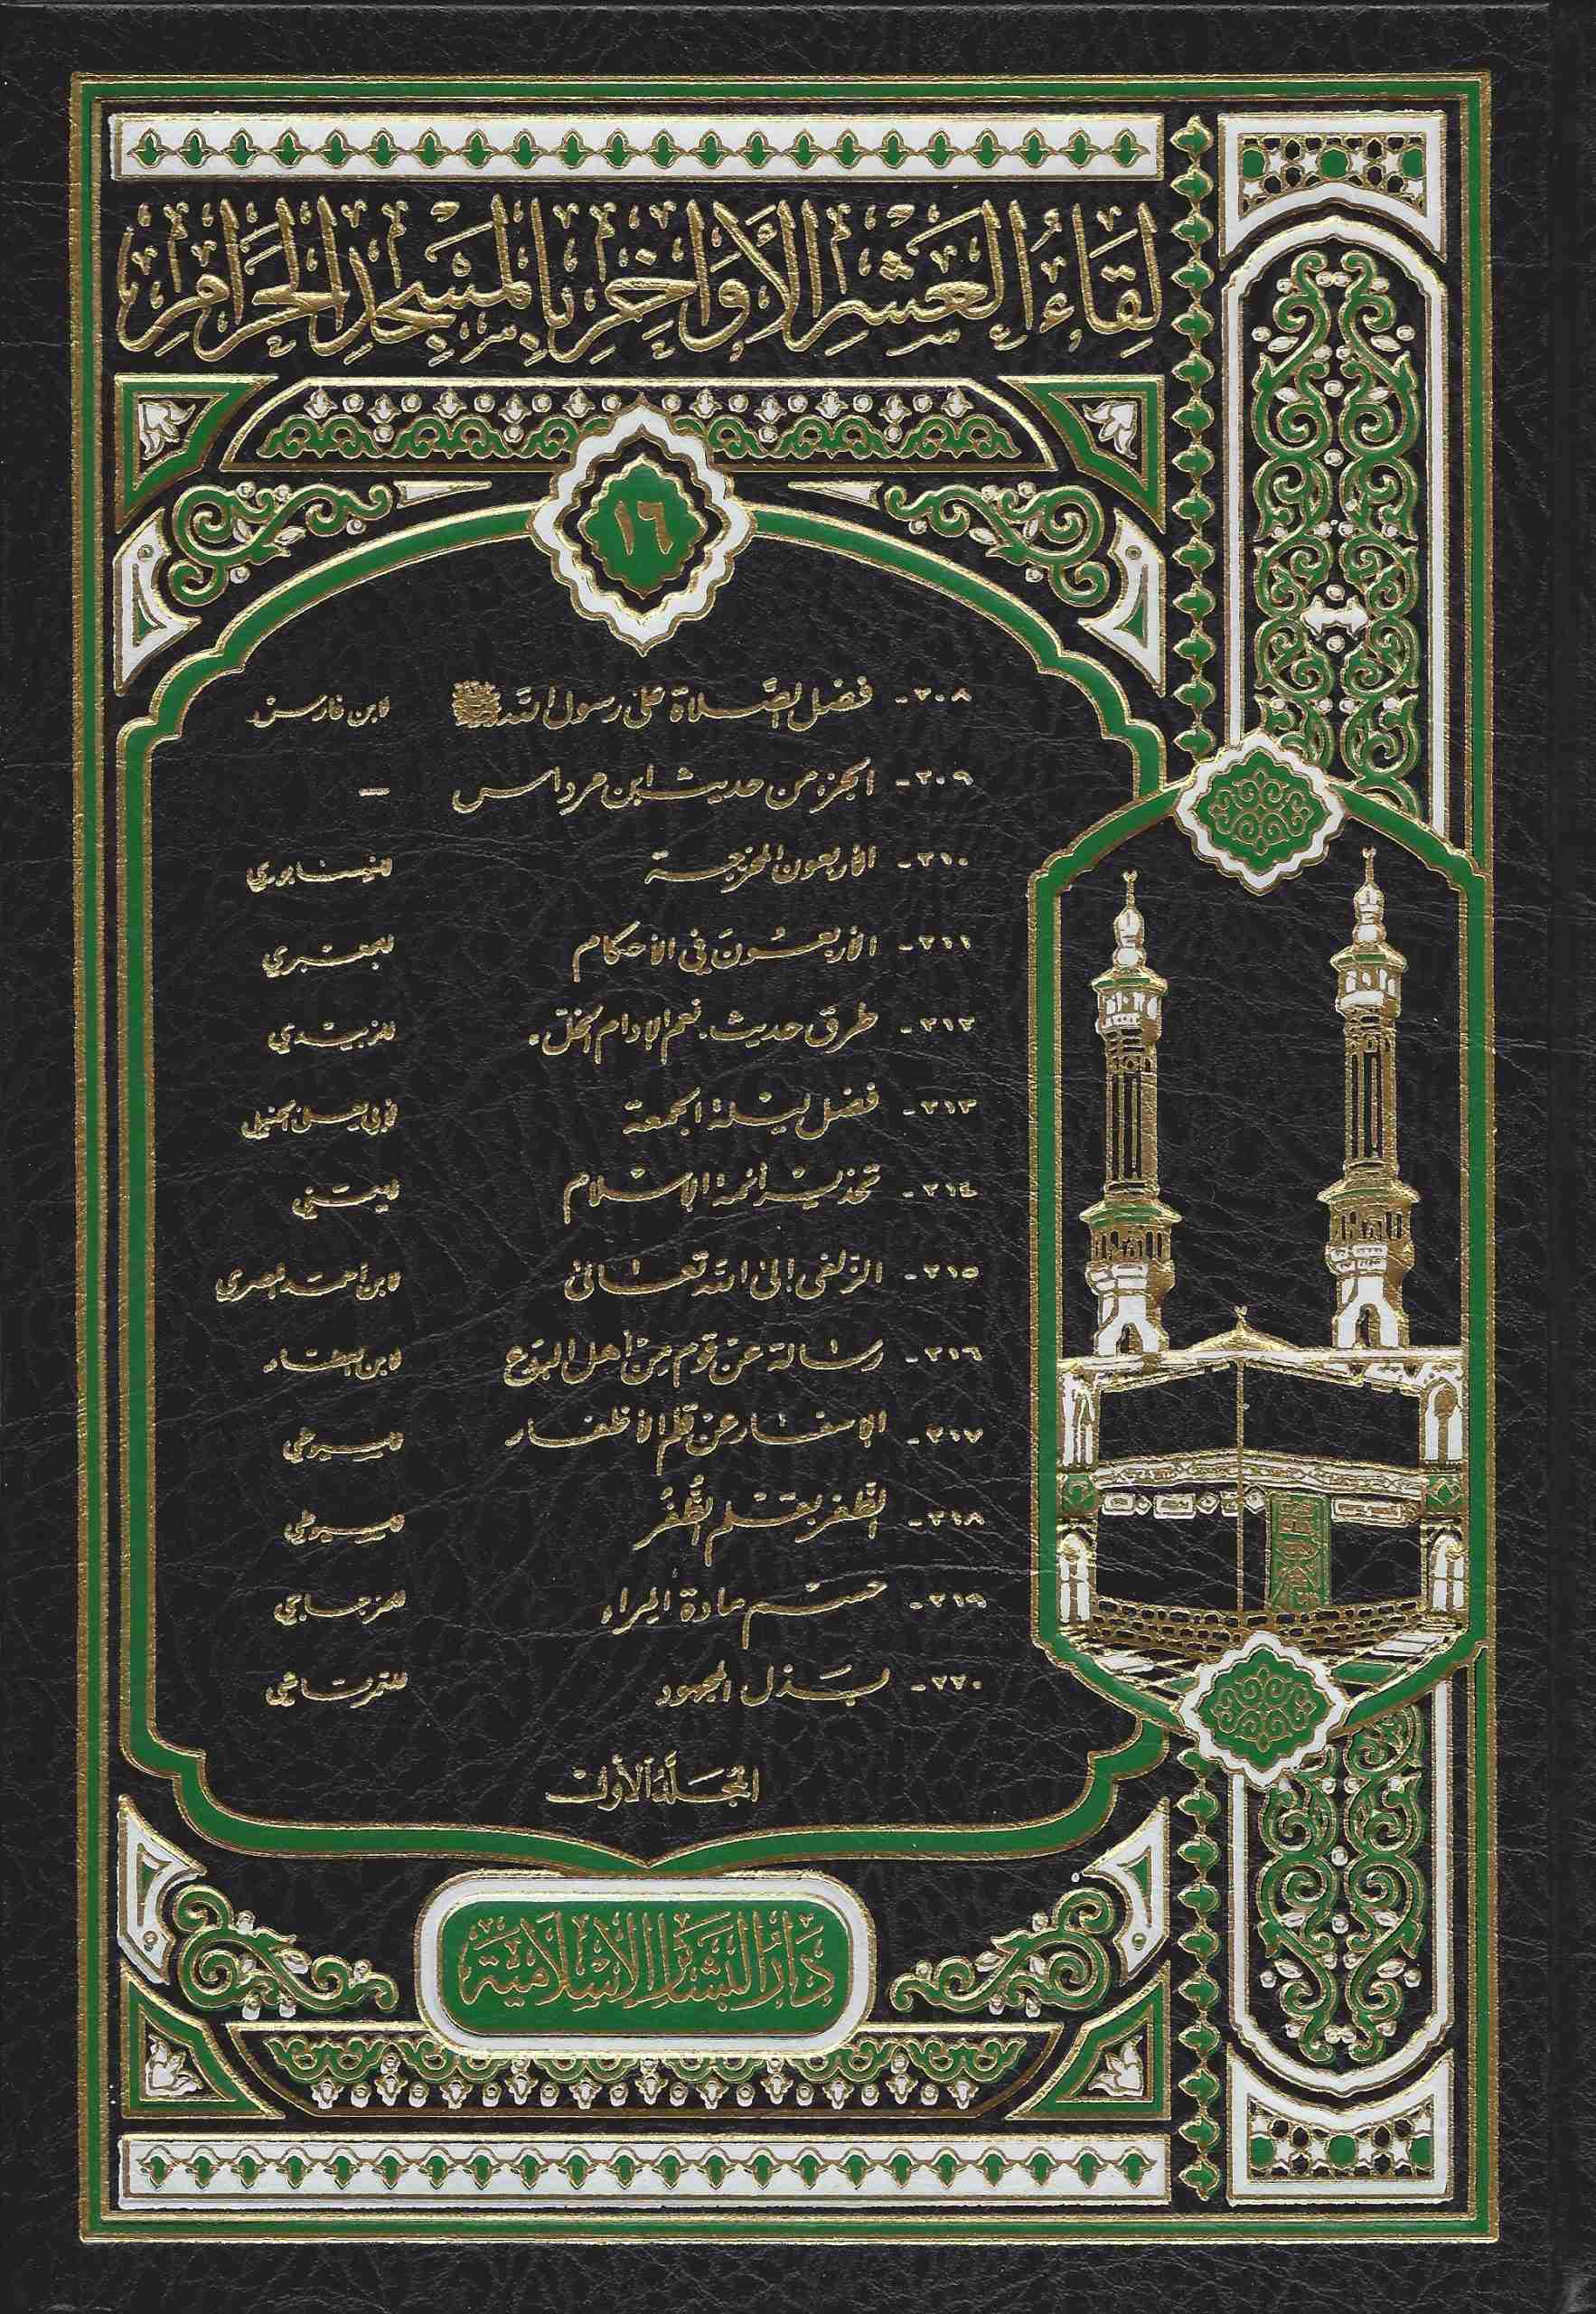 لِقَاءُ الْعَشْرِ الأَوَاخِرِ بِالْمَسْجِدِ الْحَرَامِ
١٦
٢٠٨- فضل الصَّلاة على رسول الله ﷺ لابن فارس
٢٠٩- الجزء من حديث ابن مرداس —
٢١٠- الأربعون المخرجة للنيسابوري
٢١١- الأربعون في الأحكام للجعبري
٢١٢- طرق حديث "نعم الإدام الخلّ" للزبيدي
٢١٣- فضل ليلة الجمعة لأبي يعلى الحنبلي
٢١٤- تحذير أئمة الإسلام
٢١٥- الزلفى إلى الله تعالى لابن أحمد المصري
٢١٦- رسالة عن قوم من أهل البدع لابن العطار
٢١٧- الإسفار عن قلم الأظفار للسيوطي
٢١٨- الظَّفر بقلم الظُّفُر للسيوطي
٢١٩- حسم مادة المراء للمزجاجي
٢٢٠- بذل المجهود للتمرتاشي
المجلد الأول
دار البشائر الإسلامية